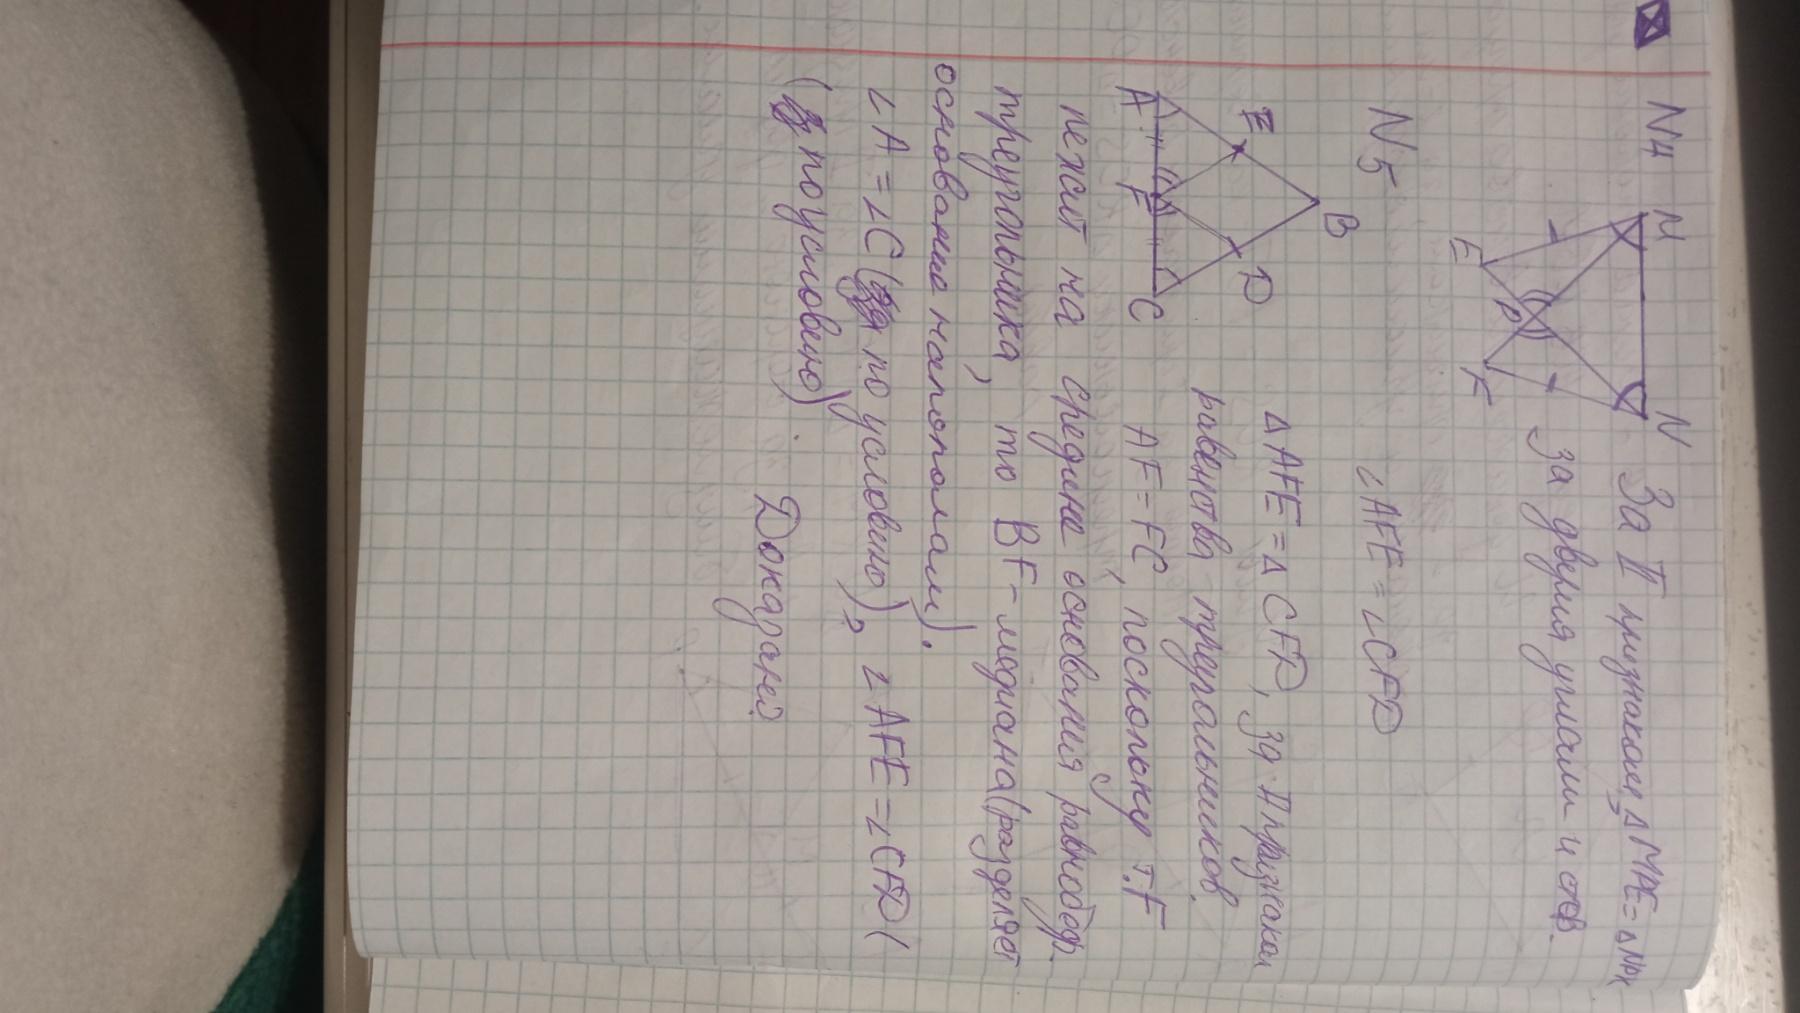 N4
M
N
E
F
P
За II признаком, ΔMPE = ΔNPF
За двумя углами и стор.
N5
∠AFE = ∠CFD
B
E
D
A
F
C
ΔAFE = Δ CFD, за II признаком
равенства треугольников.
AF = FC, поскольку т.F
лежит на средине основания равнобедр.
треугольника, то BF - медиана (разделяет
основание напополам).
∠A = ∠C ( по условию), ∠AFE = ∠CFD (
( по условию). Доказано